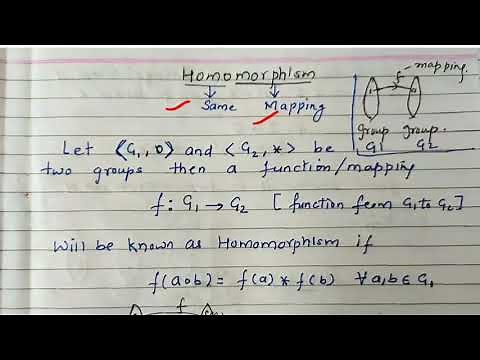 Homomorphism
Same Mapping
f mapping.
group group.
G1 G2
Let <G1, o> and <G2, *> be
two groups then a function/mapping
f: G1 → G2 [function from G1 to G2]
Will be known as Homomorphism if
f(aob) = f(a) * f(b) ∀ a,b ∈ G1
f